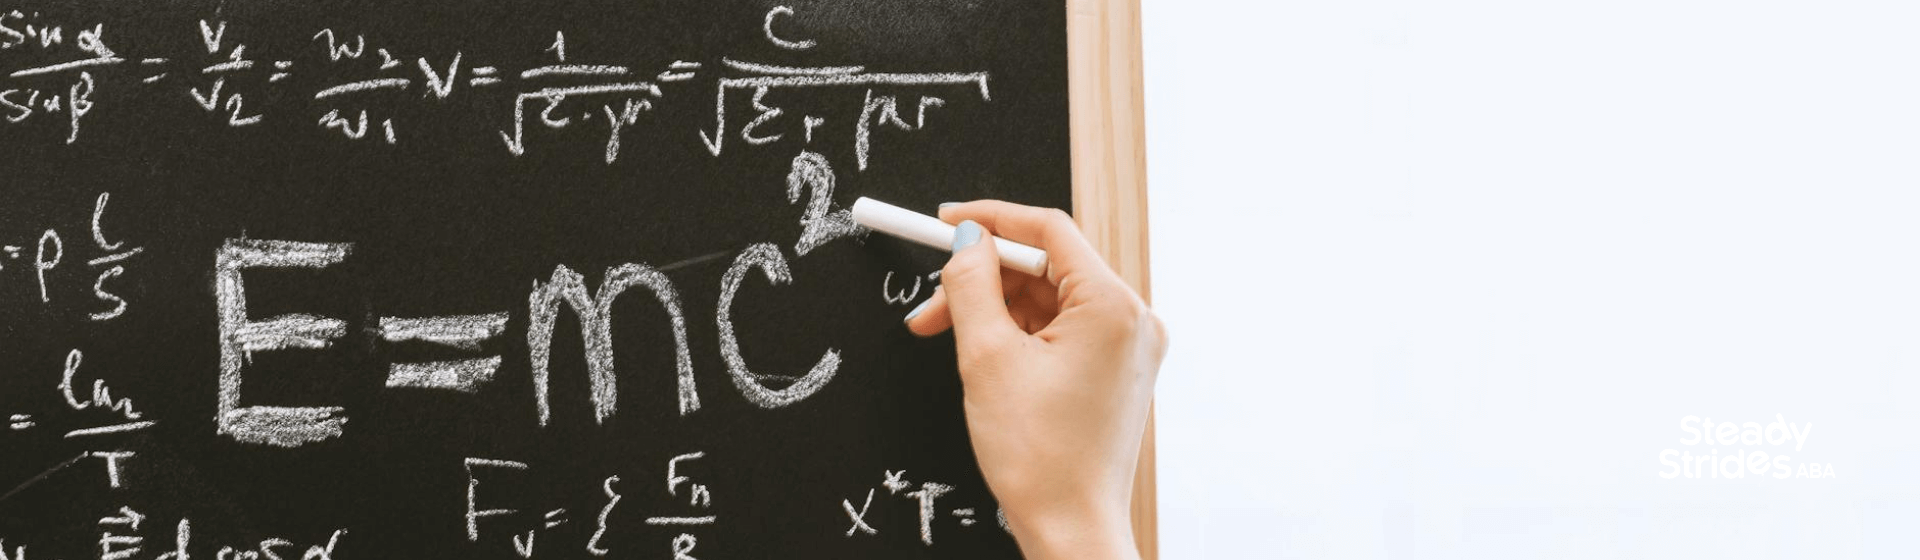 sin α / sin β = v₁ / v₂ = w₂ / w₁ V = 1 / √ε·μr = C / √εr μr
= ρ l / S
E = mc²
ω =
= ln₂ / T
F_v = { F_n / R
x* T =
E d cos α
Steady
Strides ABA